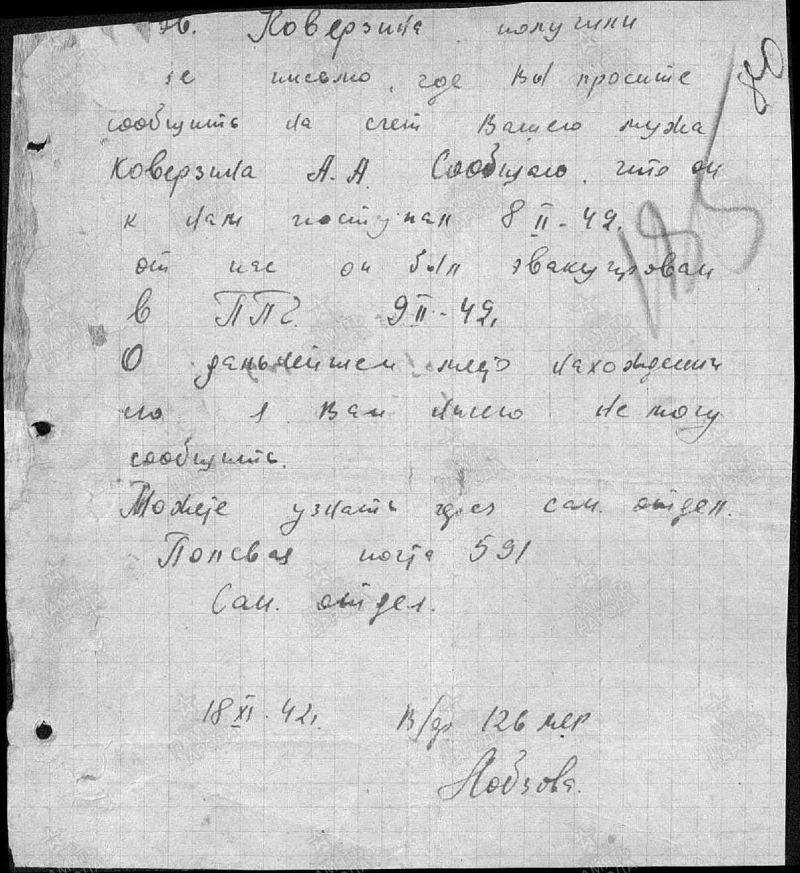 Тов. Коверзина получили
Ваше письмо, где вы просите
сообщить на счет Вашего мужа
Коверзина А.А. Сообщаю, что он
к нам поступал 8 II - 42.
от нас он был эвакуирован
в ППГ. 9 II - 42.
О дальнейшем место нахождении
его я Вам ничего не могу
сообщить.
Можете узнать через сан. отдел.
Полевая почта 591
Сан. отдел.
18 XI - 42 г.
126 мср